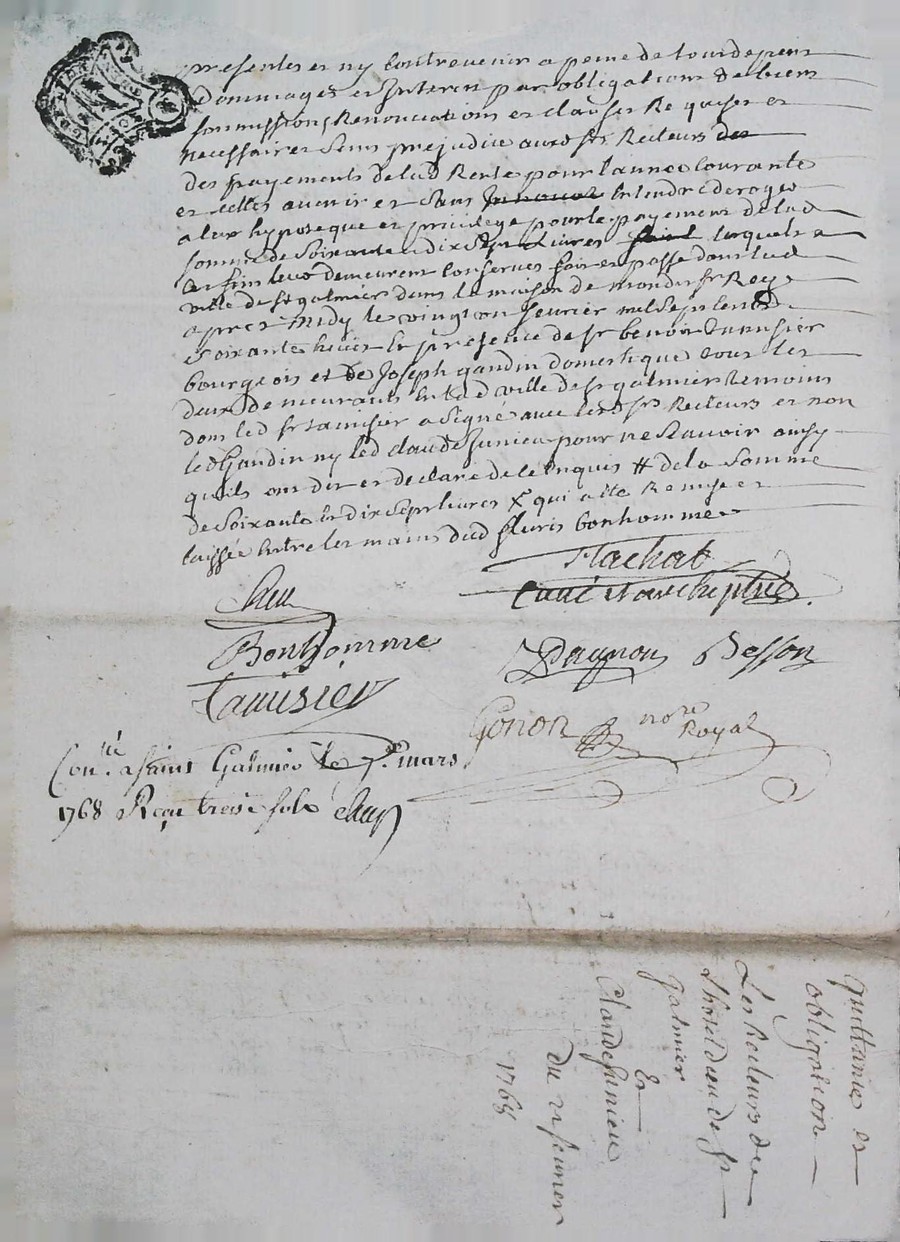 presentes et ny contrevenir a peine de tous depens
Dommages et Interets par obligations de biens
soumissions, Renonciations et clauses Requises et
necessaires sans prejudice auxd srs Recteurs des
des payements de lad Rente pour lannee Courante
et celles avenir et sans entendre deroger
a leur hypoteque et privilege pour le payement de lad
somme de Soixante dix Sept Livres lesquels a
cet fin leur demeurent Conserves fait et passé dans lad
ville de st galmier dans la maison de mondit sr Rey
apres Midy le vingt un fevrier mil Sept Cent
soixante huict En presence de sr benoit tamisier
bourgeois et de Joseph gandin domestique tous les
deux demeurants En lad ville de st galmier temoins
dont led sr tamisier a Signé avec lesd srs Recteurs et non
led Gandin ny led claude Junieu pour ne Scavoir ainsy
quils ont dit et declaré de ce Enquis # de la Somme
de Soixante et dix Sept livres x qui a été Remise et
laissée Entre les mains dud Sr bonhomme
Flachat
Curé et archiprtre
Bonhomme
Dagnon Besson
Tamisier
Gonon nore Royal
Conlé a saint Galmier le 1er mars
1768 Reçu treise sols
quittance et
obligation
Les Recteurs de
Lhotel dieu de St
galmier
Et
Claude Junieu
du 21 fevrier
1768